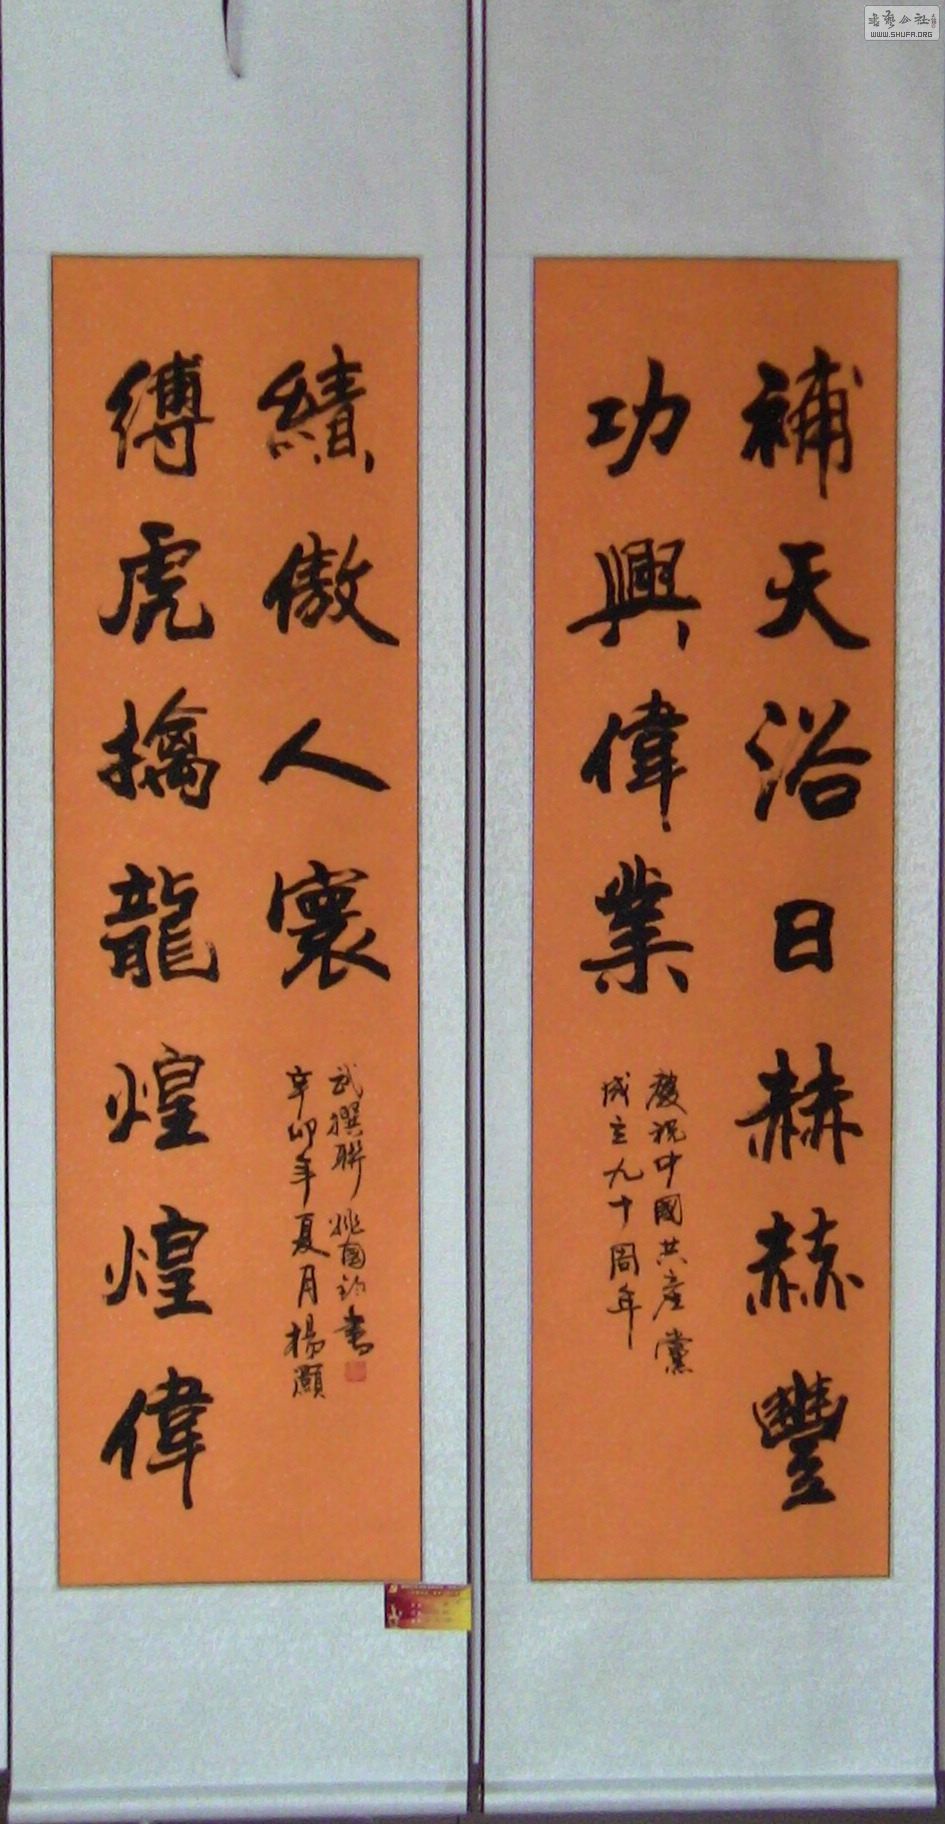 補天浴日赫赫豐
功興偉業
慶祝中國共產黨
成立九十周年
縛虎擒龍煌煌偉
績傲人寰
辛卯年夏月楊灝
武撰聯 姚國鈞書
書藝公社
WWW.SHUFA.ORG